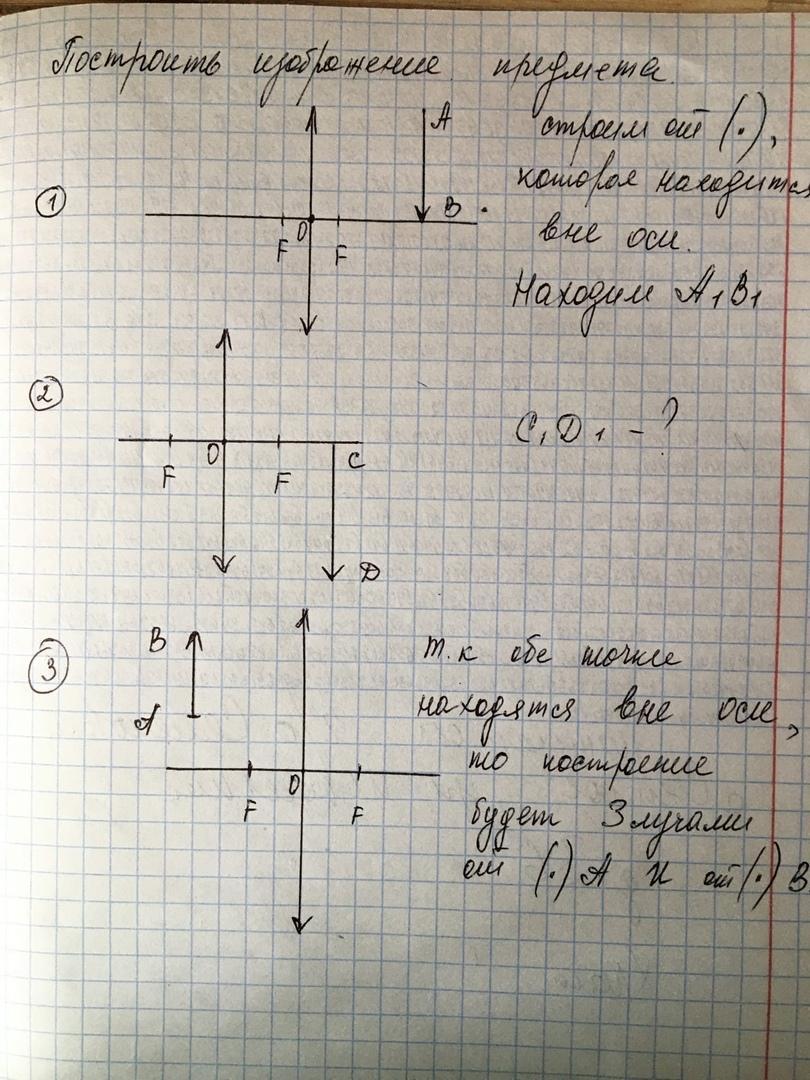 Построить изображение предмета.
строим от (·),
которая находится
вне оси.
Находим A₁B₁
①
A
B
O
F
F
②
C₁D₁ - ?
O
F
F
C
D
③
B
A
O
F
F
т.к обе точки
находятся вне оси,
то построение
будет 3 лучами
от (·) A и от (·) B